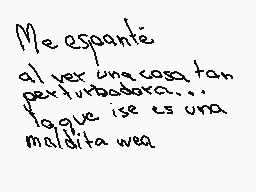 Me espanté
al ver una cosa tan
perturbadora...
lo que ise es una
maldita wea